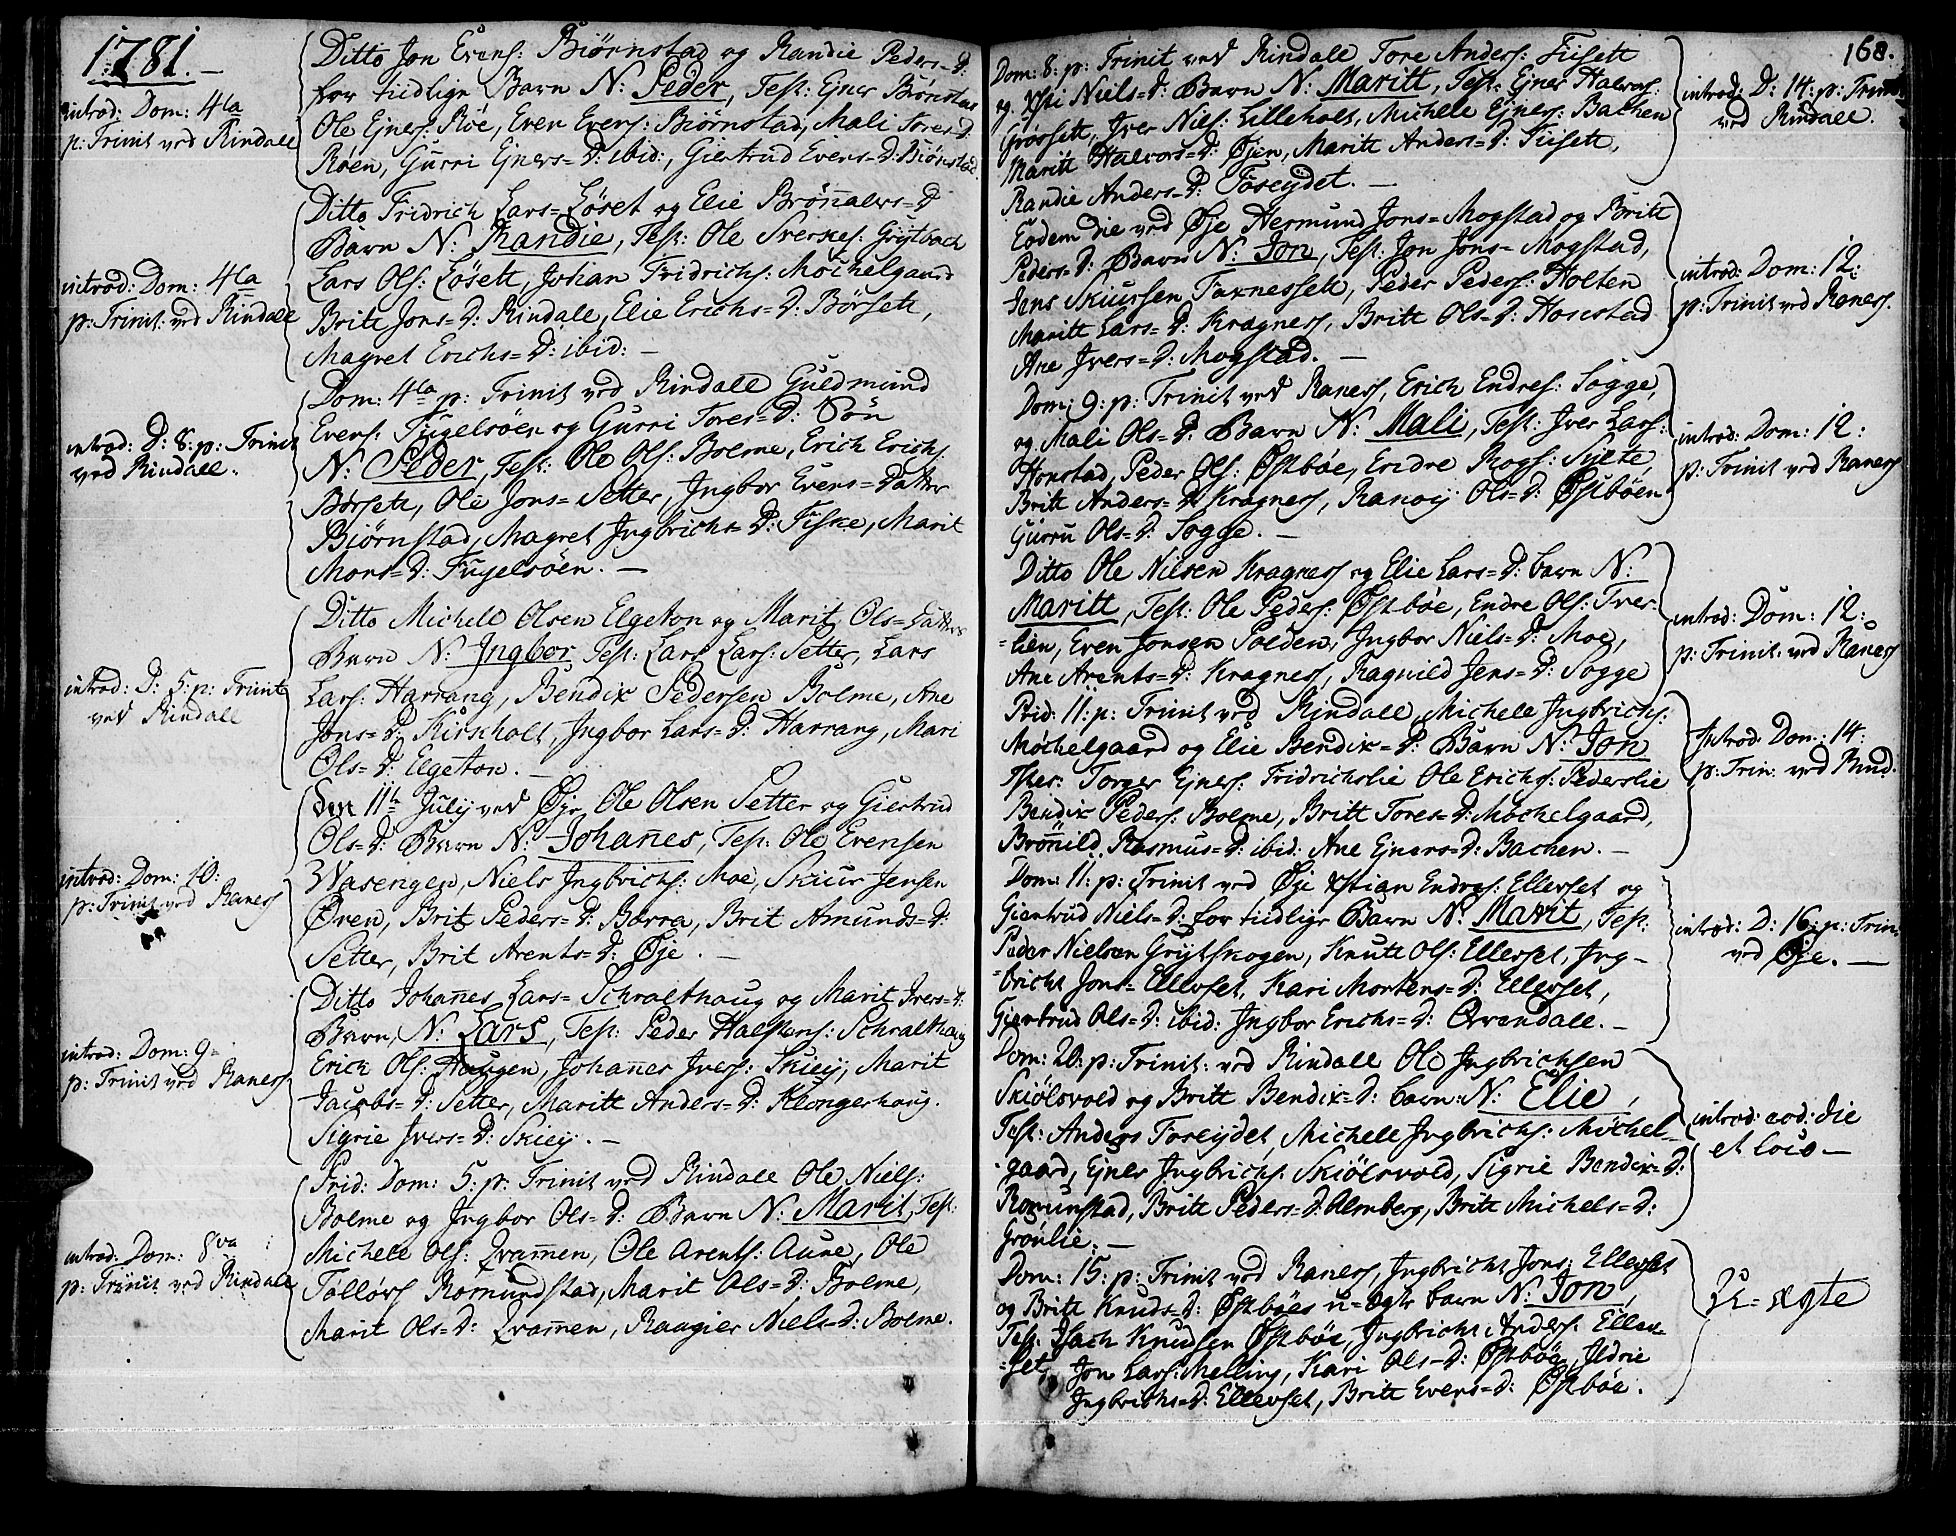 1781.
introd: Dom: 4ta
p: Trinit ved Rindale
Ditto Jon Evens: Biørnstad og Randie Peders=D:
for tiidlige Barn N: Peder, Test: Ejner Biørnstad
Ole Ejners: Røe, Even Evens: Biørnstad, Mali Tores=D:
Røen, Gurri Ejners=D: ibid:, Giertrud Evens=D: Biørnstad.
introd: Dom: 4ta
p: Trinit: ved Rindale
Ditto Fridrich Lars= Løset og Elie Brønalvs=D
Barn N: Randie, Test: Ole Sverkes: Grytbach
Lars Ols: Løsett, Johan Fridrichs: Møchelgaard
Britt Jons=D: Rindale, Elie Erichs=D: Børsett,
Magret Erichs=D: ibid: —
introd: D: 8: p: Trinit
ved Rindale.
Dom: 4ta p: Trinit ved Rindale Guldmund
Evens: Fugelsöen og Gurri Tores=D: Søn
N: Peder, Test: Ole Ols: Bolme, Erich Erichs:
Børsett, Ole Jons= Setter, Ingbor Evens= Datter
Biørnstad, Magret Ingbrichts=D: Fiske, Marit
Mons=D: Fugelsöen. —
introd: D: 5: p: Trinit
ved Rindale
Ditto Michell Olsen Elgeton og Marit Ols= Datters
Barn N: Ingbor Test: Lars Lars: Setter, Lars
Lars: Harrang, Bendix Pedersen Bolme, Ane
Jons=D: Kirkholt, Ingbor Lars=D: Harrang, Mari
Ols=D: Elgeton. —
introd: Dom: 10:
p: Trinit ved Raness
Den 11te Julij ved Øye Ole Olsen Setter og Giertrud
Ols=D: Barn N: Johanes, Test: Ole Evensen
Wasengen, Niels Ingbrichs: Moe, Skiur Jensen
Øven, Brit Peders=D: Bærra, Brit Amunds=D:
Setter, Brit Arents=D: Øje. —
introd: Dom: 9=
p: Trinit ved Raness
Ditto Johanes Lars= Schralthaug og Marit Ivers=D:
Barn, N: Lars, Test: Peder Halstens: Schralthaug
Erich Ols: Haugen, Johanes Ivers: Skiej, Marit
Jacobs=D: Setter, Maritt Anders=D: Klongerhaug.
Sigrie Ivers=D: Skiej. —
introd: Dom: 8va
p: Trinit ved Rindale
Prid: Dom: 5: p: Trinit ved Rindale Ole Niels:
Bolme og Ingbor Ols=D: Barn N: Marit, Test:
Michell Ols: Qvamen, Ole Arents: Aune, Ole
Tølløvs Romundstad, Marit Ols=D: Bolme,
Marit Ols=D: Qvamen, Raagier Niels=D: Bolme.
168.
Dom: 8: p: Trinit ved Rindale Tore Anders: Fiisett
og Xsti Niels=D: Barn N: Maritt, Test: Ejner Halvors:
Grosett, Iver Niels: Lilleholt, Michele Ejners: Bachen
Maritt Halvors=D: Øjen, Maritt Anders=D: Fiisett,
Randie Anders=D: Foseydet. —
introd: D: 14: p: Trinit
ved Rindale.
Eodem die ved Øje Hermund Jons= Mogstad og Britt
Peders=D: Barn N: Jon, Test: Jon Jons= Mogstad,
Jens Skiursen Faxnessett, Peder Peders: Holten
Maritt Lars=D: Kragness, Britt Ols=D: Honstad
Ane Ivers=D: Mogstad. —
introd: Dom: 12:
p: Trinit ved Raness.
Dom: 9: p: Trinit ved Raness, Erich Endres: Sogge,
og Mali Ols=D: Barn N: Mali, Test: Iver Lars:
Honstad, Peder Ols: Østbøe, Endre Rogs: Sylte,
Britt Anders=D: Kragness, Ranoij Ols=D: Østbøen
Gurru Ols=D: Sogge. —
introd: Dom: 12:
p: Trinit ved Raness
Ditto Ole Nilsen Kragness og Elie Lars=D: barn N:
Maritt, Test: Ole Peders: Østbøe, Endre Ols: Tver-
-lien, Even Jonsen Polden, Ingbor Niels=D: Moe,
Ane Arents=D: Kragness, Ragnild Jens=D: Sogge
introd: Dom: 12:
p: Trinit ved Raness
Prid: 11: p: Trinit ved Rindale, Michele Ingbrichs:
Møchelgaard og Elie Bendix=D: Barn N: Jon
Test: Torger Ejners: Fridrichslie Ole Erichs: Pederslie
Bendix Peders: Bolme, Britt Tores=D: Møchelgaard,
Brønild Rasmus=D: ibid: Ane Ejners=D: Bachen. —
Introd: Dom: 14:
p: Trin: ved Rind.
Dom: 11: p: Trinit ved Øje Xstian Endres: Ellevset og
Giertrud Niels=D: for tiidlige Barn N: Marit, Test:
Peder Nielsen Grytskogen, Knutt Ols: Ellevset, Ing-
-bricht Jons= Ellevset, Kari Mortens=D: Ellevset,
Giertrud Ols=D: ibid: Ingbor Erichs=D: Qvendale. —
introd: D: 16: p: Trin:
ved Øje. —
Dom: 20: p: Trinit: ved Rindale Ole Ingbrichsen
Skiølsvold og Britt Bendix=D: barn: N: Elie,
Test: Anders Foseydet, Michele Ingbrichs: Møchel-
-gaard, Ejner Ingbrichs: Skiølsvold, Sigrie Bendix=D:
Romunstad, Britt Peders=D: Almberg, Britt Michels=D:
Grønlie. —
introd: eod: die
et loco —
Dom: 15: p: Trinit ved Raness, Ingbricht Jons: Ellevset
og Britt Knuds=D: Østbøes u=ægte barn N: Jon,
Test: Isach Knudsen Østbøe, Ingbricht Anders: Ellev-
-set, Jon Lars: Melling, Kari Ols=D: Østbøe, Ildrie
Ingbrichts=D: Ellevset, Britt Evens=D: Østbøe.
U=ægte